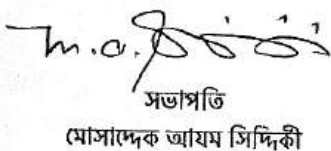 m.a.
সভাপতি
মোসাদ্দেক আযম সিদ্দিকী